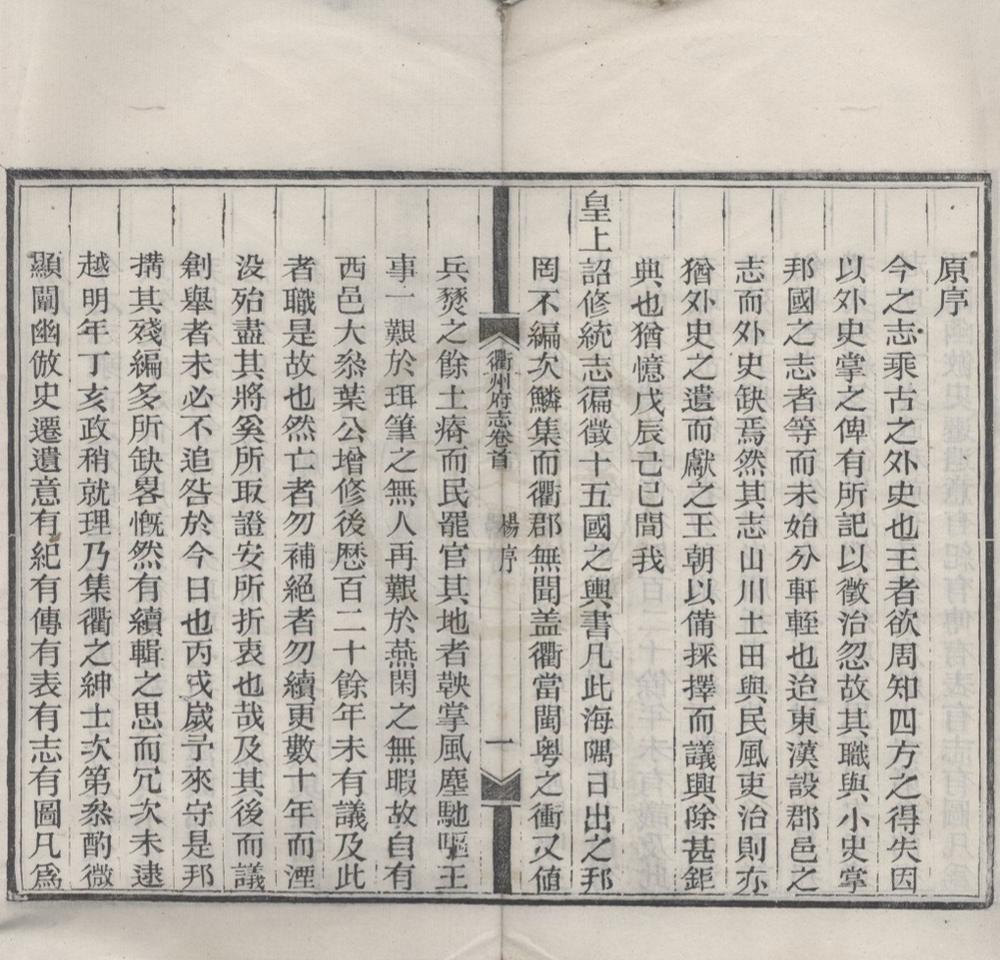 原序
今之志乘古之外史也王者欲周知四方之得失因
以外史掌之俾有所記以徵治忽故其職與小史掌
邦國之志者等而未始分軒輊也迨東漢設郡邑之
志而外史缺焉然其志山川土田與民風吏治則亦
猶外史之遺而獻之王朝以備採擇而議興除甚鉅
典也猶憶戊辰己巳間我
皇上詔修統志徧徵十五國之輿書凡此海隅日出之邦
罔不編次鱗集而衢郡無聞盖衢當閩粤之衝又值
衢州府志卷首 楊序 一
兵燹之餘土瘠而民罷官其地者鞅掌風塵馳驅王
事一艱於珥筆之無人再艱於燕閑之無暇故自有
西邑大叅葉公增修後歷百二十餘年未有議及此
者職是故也然亡者勿補絕者勿續更數十年而湮
没殆盡其將奚所取證安所折衷也哉及其後而議
創舉者未必不追咎於今日也丙戌嵗予來守是邦
搆其殘編多所缺畧慨然有續輯之思而冗次未逮
越明年丁亥政稍就理乃集衢之紳士次第叅酌微
顯闡幽倣史遷遺意有紀有傳有表有志有圖凡爲